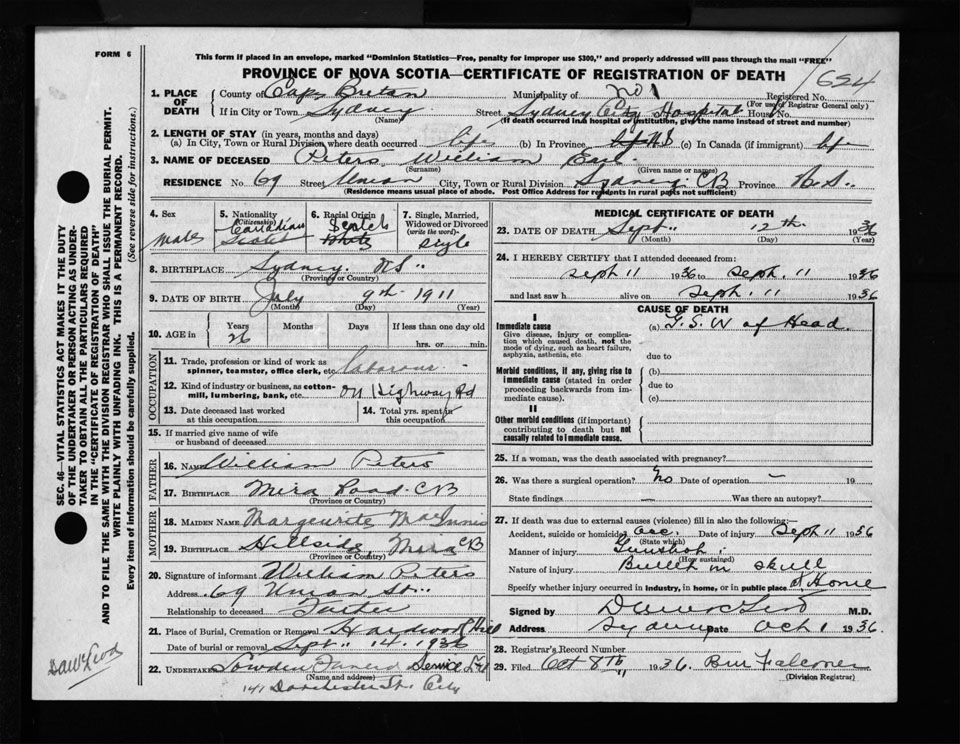 FORM 6
This form if placed in an envelope, marked "Dominion Statistics—Free, penalty for improper use $300," and properly addressed will pass through the mail "FREE"
PROVINCE OF NOVA SCOTIA—CERTIFICATE OF REGISTRATION OF DEATH
1. PLACE OF DEATH
County of Cape Breton Municipality of No 1 Registered No.
(For use of Registrar General only)
If in City or Town Sydney Street Sydney City Hospital House No.
(Name) (If death occurred in a hospital or institution, give the name instead of street and number)
2. LENGTH OF STAY (in years, months and days)
(a) In City, Town or Rural Division where death occurred life (b) In Province life NS (c) In Canada (if immigrant) life
3. NAME OF DECEASED Peters William Earl
(Surname) (Given name or names)
RESIDENCE No. 69 Street Union City, Town or Rural Division Sydney CB Province N.S.
(Residence means usual place of abode. Post Office Address for residents in rural parts not sufficient)
4. Sex
male
5. Nationality (Citizenship)
Canadian
6. Racial Origin
Scotch
7. Single, Married, Widowed or Divorced (write the word)
single
8. BIRTHPLACE Sydney NS
(Province or Country)
9. DATE OF BIRTH July 9th 1911
(Month) (Day) (Year)
10. AGE in
Years Months Days If less than one day old
26 hrs. or min.
OCCUPATION
11. Trade, profession or kind of work as spinner, teamster, office clerk, etc.
12. Kind of industry or business, as cotton-mill, lumbering, bank, etc. on Highway Rd
13. Date deceased last worked at this occupation
14. Total yrs. spent in this occupation
15. If married give name of wife or husband of deceased
FATHER
16. NAME William Peters
17. BIRTHPLACE Mira Road CB
(Province or Country)
MOTHER
18. MAIDEN NAME Marguerite MacInnis
19. BIRTHPLACE Hillside, Mira CB
(Province or Country)
20. Signature of informant William Peters
Address 69 Union St.
Relationship to deceased Father
21. Place of Burial, Cremation or Removal Hardwood Hill
Date of burial or removal Sept 14 1936
22. UNDERTAKER Service Ltd
(Name and address)
147 Dorchester St. City
MEDICAL CERTIFICATE OF DEATH
23. DATE OF DEATH Sept. 12th 1936
(Month) (Day) (Year)
24. I HEREBY CERTIFY that I attended deceased from:
Sept 11 1936 to Sept. 11 1936
and last saw h alive on Sept. 11 1936
CAUSE OF DEATH
I
Immediate cause (a) G.S.W of Head
Give disease, injury or complication which caused death, not the mode of dying, such as heart failure, asphyxia, asthenia, etc.
due to
Morbid conditions, if any, giving rise to immediate cause (stated in order proceeding backwards from immediate cause).
(b)
due to
(c)
II
Other morbid conditions (if important) contributing to death but not causally related to immediate cause.
25. If a woman, was the death associated with pregnancy?
26. Was there a surgical operation? No Date of operation — 19
State findings — Was there an autopsy?
27. If death was due to external causes (violence) fill in also the following:—
Accident, suicide or homicide? acc. Date of injury Sept 11 1936
(State which)
Manner of injury Gunshot
(How sustained)
Nature of injury Bullet in skull
Specify whether injury occurred in industry, in home, or in public place at Home
Signed by M.D.
Address Sydney Date Oct 1 1936
28. Registrar's Record Number
29. Filed Oct 8th 1936 Falconer
(Division Registrar)
SEC. 46—VITAL STATISTICS ACT MAKES IT THE DUTY OF THE UNDERTAKER OR PERSON ACTING AS UNDERTAKER TO OBTAIN ALL THE PARTICULARS REQUIRED IN THE "CERTIFICATE OF REGISTRATION OF DEATH" AND TO FILE THE SAME WITH THE DIVISION REGISTRAR WHO SHALL ISSUE THE BURIAL PERMIT.
(See reverse side for instructions.)
WRITE PLAINLY WITH UNFADING INK. THIS IS A PERMANENT RECORD.
Every item of information should be carefully supplied.